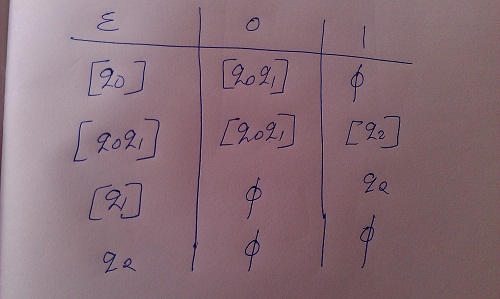 ε 0 1
[q0] [q0q1] ϕ
[q0q1] [q0q1] [q2]
[q1] ϕ q2
q2 ϕ ϕ